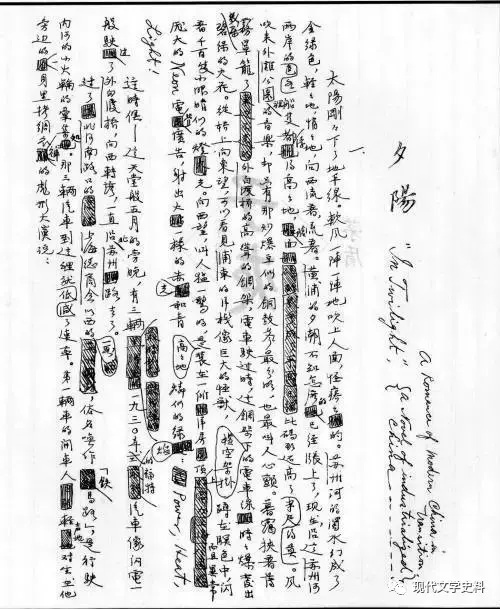 夕陽
"In Twilight,"
A Romance of modern China in Transition
(a Novel of industrialized China
一、
太陽剛剛下了地平線。軟風一陣一陣地吹上人面,怪癢癢的。蘇州河的濁水幻成了
金綠色,輕輕地,悄悄地,向西流着,流着。黃浦的夕潮不知怎的已經漲上了,現在沿這蘇州河
兩岸的各色船隻都浮得高高地,艙面比碼頭還高了半尺的樣。風
吹來外灘公園的音樂,却只有那炒爆豆似的銅鼓聲最分明,也最叫人心顫。暮靄挾着薄
霧籠罩了外白渡橋的高聳的鋼架,電車駛過時,這鋼架下橫空架掛的電車線時時爆發出
幾朵碧綠的火花。從橋上向東望,可以看見浦東的洋棧像巨大的怪獸,蹲在暝色中,閃
着千百隻小眼睛似的燈火。向西望,叫人猛一驚的,是高高地裝在一所洋房頂上而且異常
龐大的Neon電管廣告,射出火一樣的赤光和青燐似的綠焰:Power, Heat
Light!
這時候——這天堂般五月的傍晚,有三輛一九三〇年式的福特汽車像閃電一
般駛過了外白渡橋,向西轉彎,一直沿北蘇州路去了。
過了北河南路口的上海總商會以西的一段,俗名喚作鐵馬路,是行駛
內河的小火輪的彙集處。那三輛汽車到這裡就低減了速率。第一輛車的開車人輕聲地對坐在他
旁邊的穿一身黑拷綢衣褲的彪形大漢說:
现代文学史料